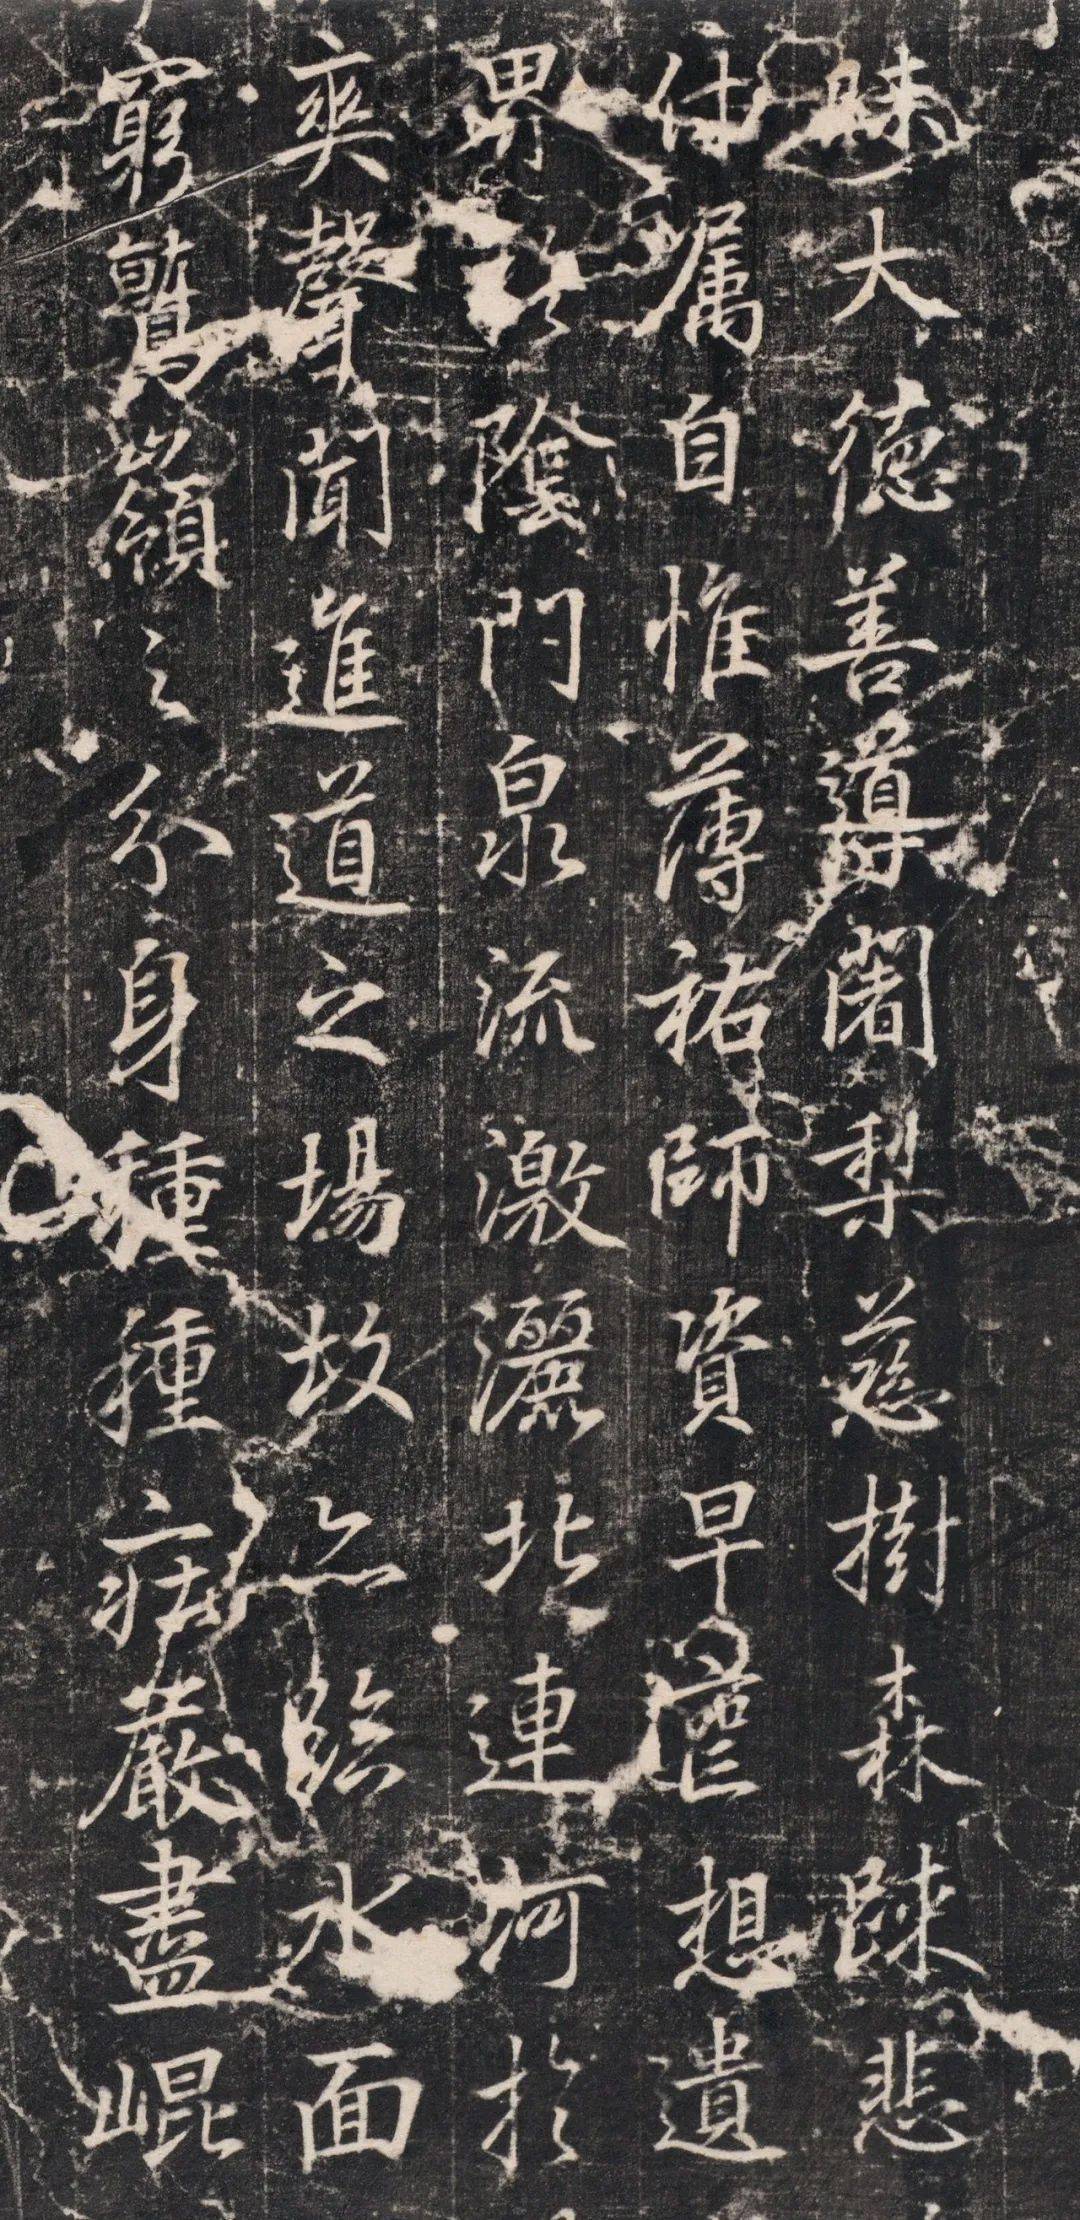 眛大德善導闍梨慈樹森踈悲
付嘱自惟薄祐師資早喪想遺
界陰門泉流激灑北連河於
爽聲聞進道之場故亦臨水面
窮鷲嶺之分身種種莊嚴盡崐